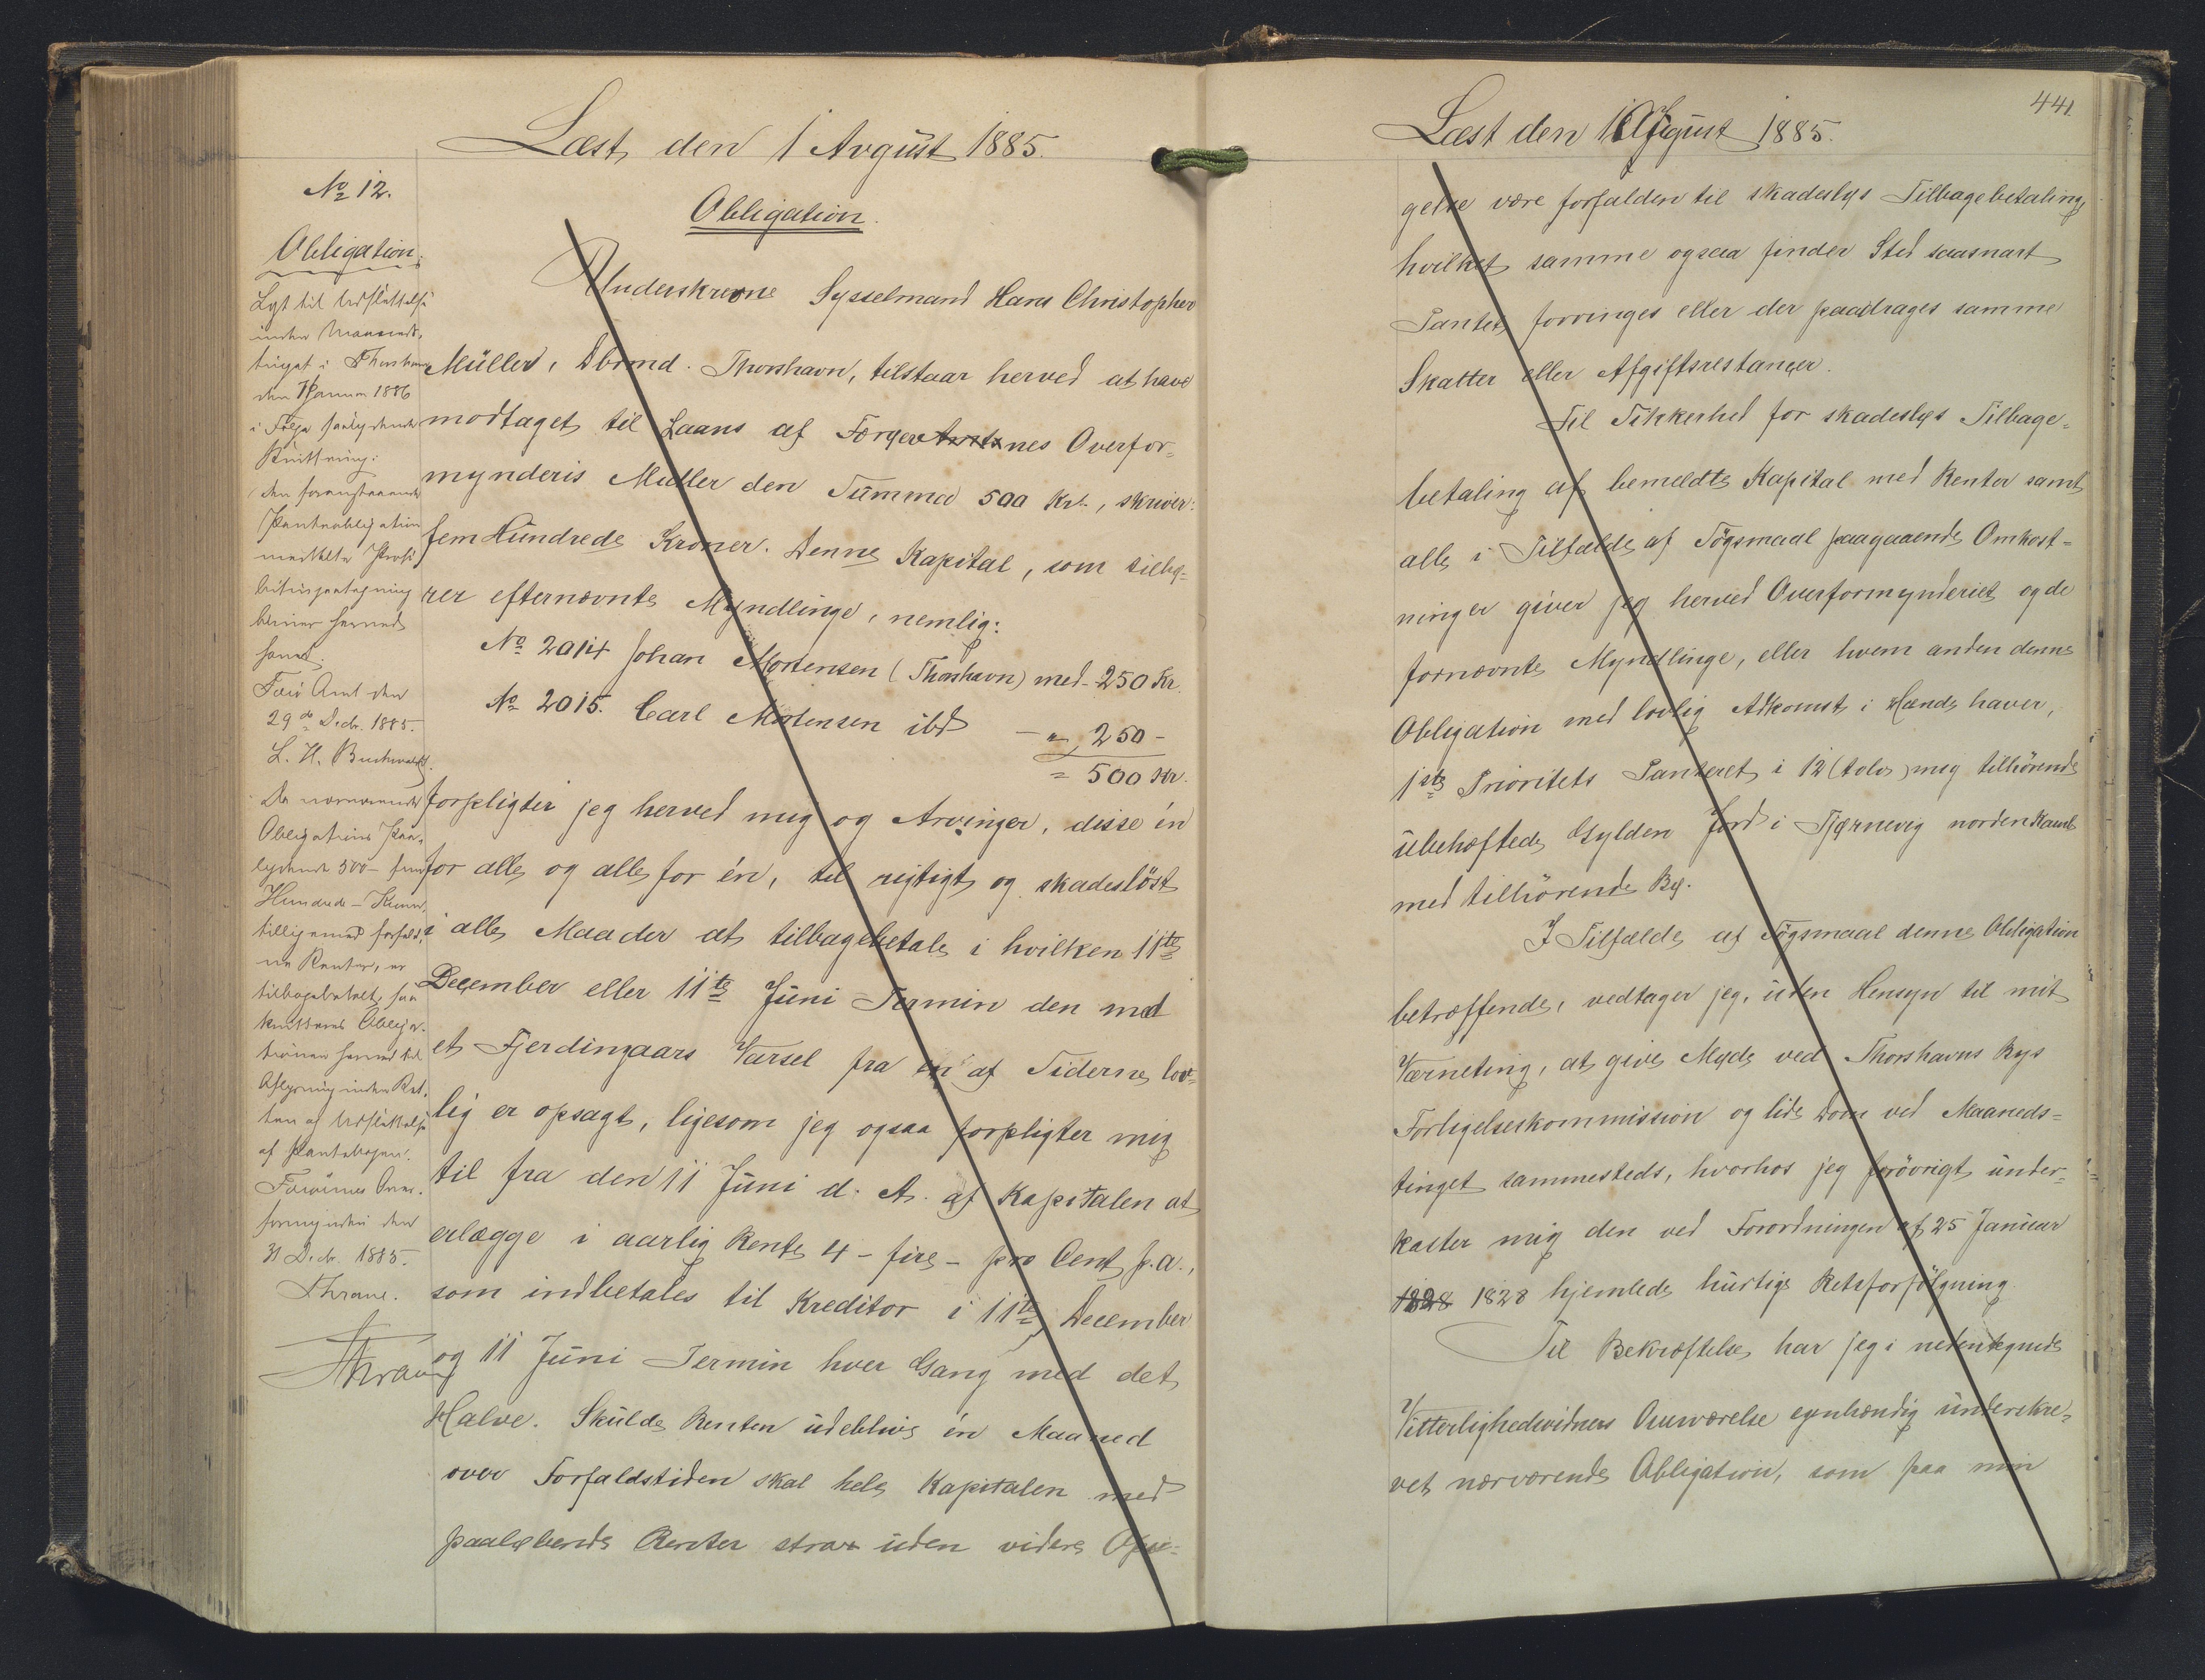 Læst den 1 August 1885.
No 12.
Obligation.
Lyst til Udslettelse
inden Maaneds-
tinget i Thorshavn
den Januar 1886
i Følge saalydende
Kvittering:
Den foranstaaende
Panteobligation
meddelte Prohi-
bitivpaategning
bliver herved
hævet.
Færø Amt den
29de Decbr. 1885.
L. H. Buchwaldt.
Da nærværende
Obligations Paa-
lydende 500 - fem
Hundrede - Kroner,
tilligemed forfald-
ne Renter, er
tilbagebetalt, saa
kvitteres Obliga-
tionen herved til
Aflysning inden Ret-
ten og Udslettelse
af Pantebogen.
Færøernes Over-
formynderi den
31 Decbr. 1885.
Thrane.
Thrane
Obligation.
Underskrevne Sysselmand Hans Christopher
Müller, Dbrmd. Thorshavn, tilstaar herved at have
modtaget til Laans af Færøernes Overfor-
mynderis Midler den Summa 500 Kr., skriver:
fem Hundrede Kroner. Denne Kapital, som tilhø-
rer efternævnte Myndlinge, nemlig:
No 2014 Johan Mortensen (Thorshavn) med - 250 Kr.
No 2015. Carl Mortensen ibd — " 250 -
= 500 Kr.
forpligter jeg herved mig og Arvinger, disse én
for alle og alle for én, til rigtigt og skadesløst
i alle Maader at tilbagebetale i hvilken 11te
December eller 11te Juni Termin den med
et Fjerdingaars Varsel fra én af Siderne lov-
lig er opsagt, ligesom jeg ogsaa forpligter mig
til fra den 11 Juni d. A. af Kapitalen at
erlægge i aarlig Rente 4 - fire - pro Cent p.a.,
som indbetales til Kreditor i 11te December
og 11 Juni Termin hver Gang med det
Halve. Skulde Renten udeblive én Maaned
over Forfaldstiden skal hele Kapitalen med
paaløbende Renter strax uden videre Opsi-
441
Læst den 1 August 1885.
gelse være forfalden til skadesløs Tilbagebetaling,
hvilket samme ogsaa finder Sted saasnart
Pantet forringes eller der paadrages samme
Skatter eller Afgiftsrestancer.
Til Sikkerhed for skadesløs Tilbage-
betaling af bemeldte Kapital med Renter samt
alle i Tilfælde af Søgsmaal paagaaende Omkost-
ninger giver jeg herved Overformynderiet og de
fornævnte Myndlinge, eller hvem anden denne
Obligation med lovlig Adkomst i Hænde haver,
1ste Prioritets Panteret i 12 (tolv) mig tilhørende
ubehæftede Gylden Jord i Tjørnevig norden Kamb
med tilhørende By.
I Tilfælde af Søgsmaal denne Obligation
betræffende, vedtager jeg, uden Hensyn til mit
Værneting, at give Møde ved Thorshavns Bys
Forligelseskommission og lide Dom ved Maaneds-
tinget sammesteds, hvorhos jeg forøvrigt under-
kaster mig den ved Forordningen af 25 Januar
1828 1828 hjemlede hurtige Retsforfølgning.
Til Bekræftelse har jeg i nedentegnede
Vitterlighedsvidners Overværelse egenhændig underskre-
vet nærværende Obligation, som paa min